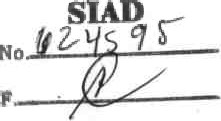 SIAD
No. 624595
F.